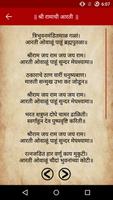 6:07
॥ श्री रामाची आरती ॥
त्रिभुवनमंडितमाळ गळां।
आरती ओवाळूं पाहूं ब्रह्मपुतळा॥
श्रीराम जय राम जय जय राम।
आरती ओवाळूं पाहूं सुन्दर मेघश्यामा॥
ठकाराचे ठाण वारीं धनुष्यबाण।
मारुती सन्मुख उभा कर जोडून॥
श्रीराम जय राम जय जय राम।
आरती ओवाळूं पाहूं सुन्दर मेघश्यामा॥
भरत शत्रुघ्न दोघे चामर ढाळिती।
स्वर्गाहून देव पुष्पवृष्टि करिती॥
श्रीराम जय राम जय जय राम।
आरती ओवाळूं पाहूं सुन्दर मेघश्यामा॥
रत्नजडित हार वर्णू काय मुकुटी।
आरती ओवाळूं चौदां भुवनांच्या कोटी॥